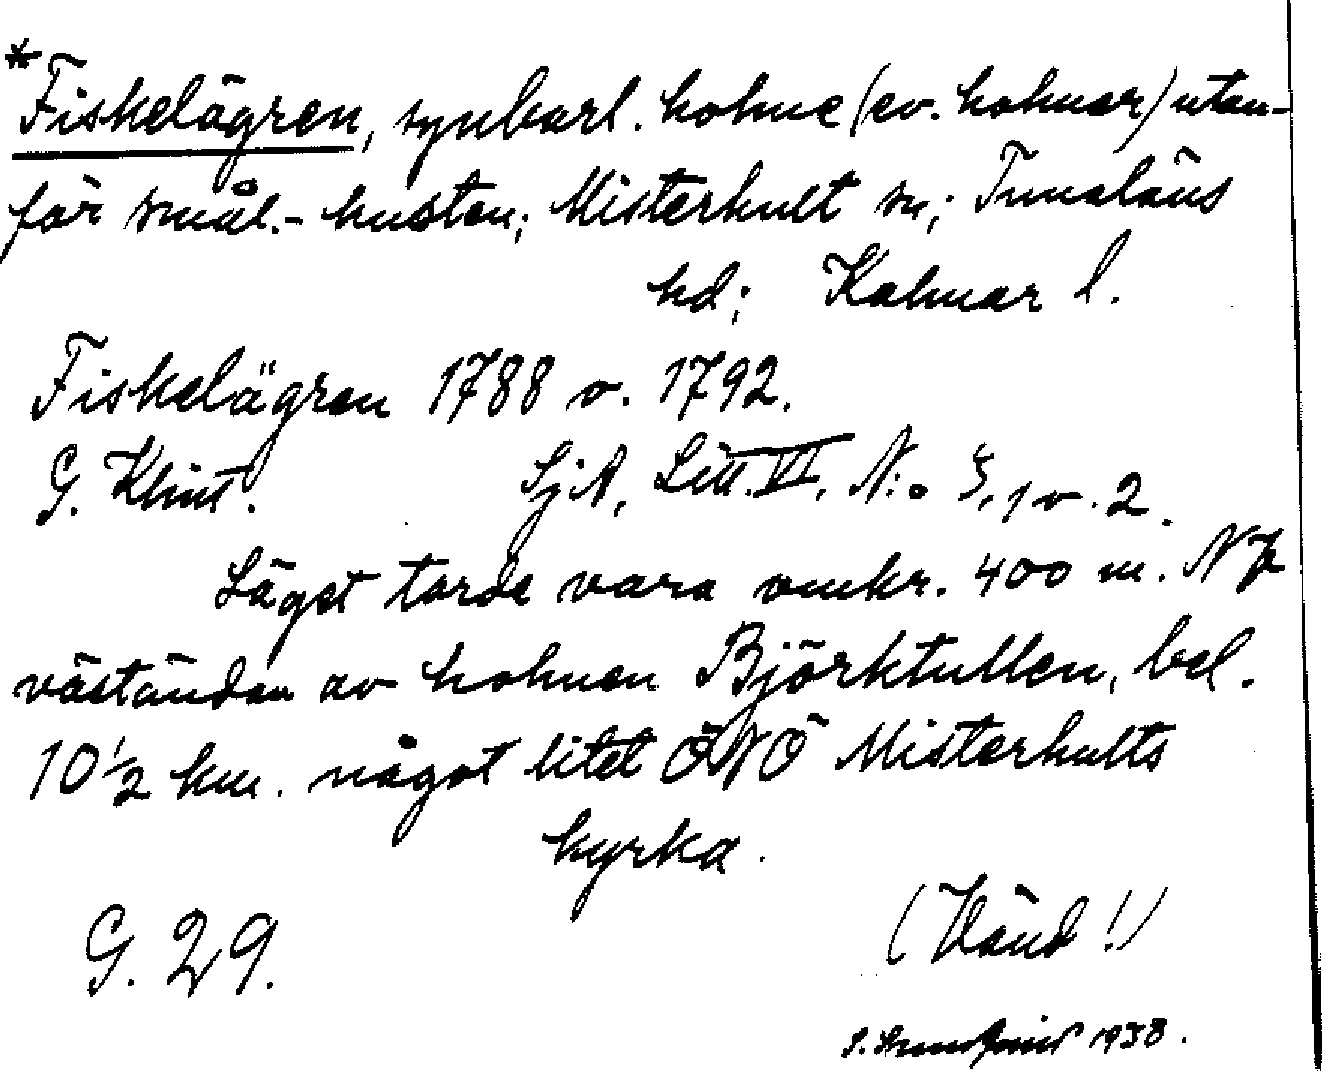 *Fiskelägren, synbarl. holme (ev. holmar) utan-
för smål.-kusten; Misterhult sn; Tunaläns
hd; Kalmar l.
Fiskelägren 1788 o. 1792.
G. Klint. SjA, Litt. VI, N:o 3, 1 o. 2.
Läget torde vara omkr. 400 m. NV
väständan av holmen Björktullen, bel.
10 1/2 km. något litet ÖNÖ Misterhults
kyrka.
G. 29. (Vänd!)
1938.